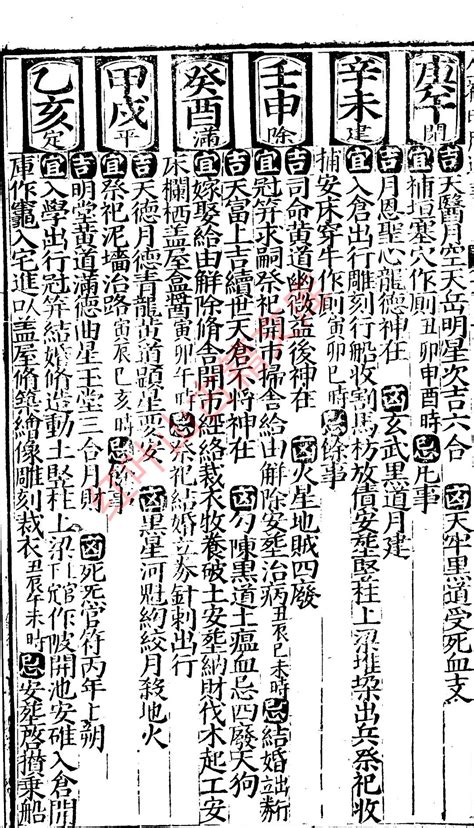 庚午開
吉天醫月空天岳明星次吉六合 凶天牢黑道受死血支
宜補垣塞穴作厠丑卯申酉時忌凡事
辛未建
吉月恩聖心龍德神在 凶玄武黑道月建
宜入倉出行雕刻行船收割馬枋放債安葬豎柱上梁堆垛出兵祭祀收
捕安床穿牛作厠寅卯巳時忌餘事
壬申除
吉司命黃道幽微益後神在 凶火星地賊四廢
宜冠笄求嗣祭祀開市掃舍給由解除安葬治病丑辰巳未時忌結婚出行
癸酉滿
吉天富上吉續世天倉不將神在 凶勾陳黑道土瘟血忌四廢天狗
宜嫁娶給由解除脩舍開市經絡裁衣牧養破土安葬納財伐木起工安
床欄栖盖屋盒醬寅卯午時忌祭祀結婚立券針刺出行
甲戌平
吉天德月德青龍黃道顯星吉安 凶黑星河魁約絞月殺地火
宜祭祀泥墻治路寅辰巳亥時忌餘事
乙亥定
吉明堂黃道滿德曲星玉堂三合月財 凶死死官符丙年上朔
宜入學出行冠笄結婚脩造動土豎柱上梁作陂開池安碓入倉開
庫作竈入宅進人盖屋脩築繪像雕刻裁衣丑辰午未時忌安葬啓攢乗船